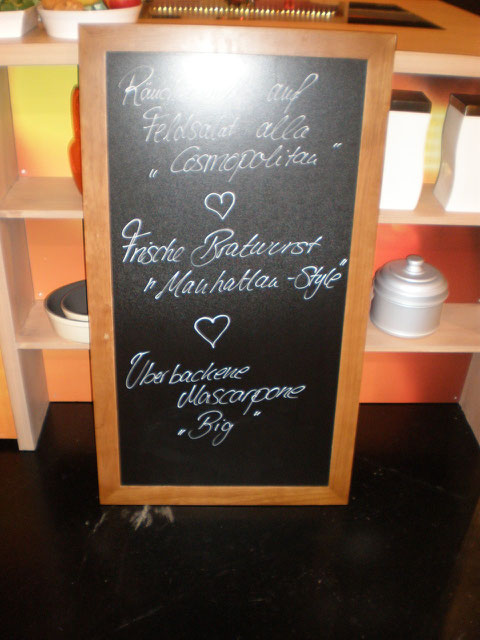 auf
Feldsalat alla
"Cosmopolitan"
Frische Bratwurst
"Manhattan-Style"
Überbackene
Mascarpone
"Big"